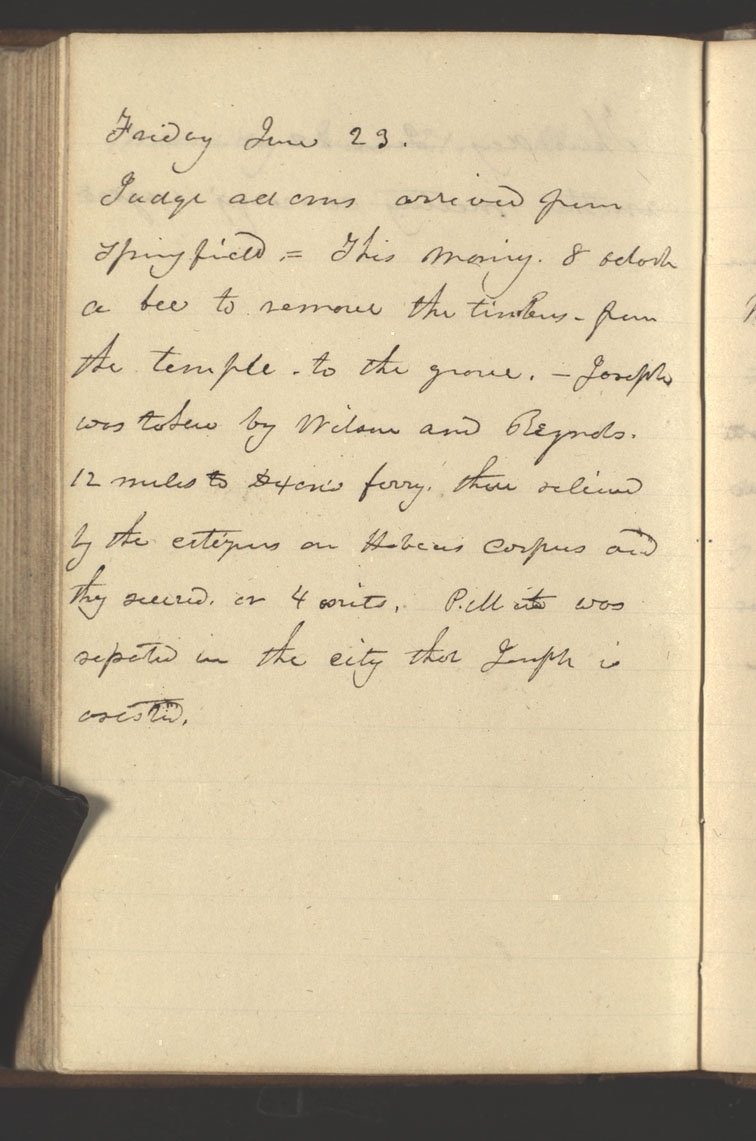 Friday June 23.
Judge adams arrived from
Springfield. = This morning. 8 oclock
a bee to remove the timbers - from
the temple. to the grove. - Joseph
was taken by Wilson and Reynols.
12 miles to Dixons ferry. there relievd
by the citizens on Habeus corpus and
they secured. or 4 writs. P.M it was
repoted in the city that Joseph is
arested.